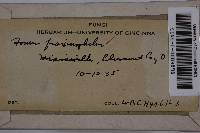 FUNGI
HERBARIUM—UNIVERSITY OF CINCINNA
Fomes fraxinophilus
Miamiville, Clermont Co, O
10-10-35
DET. COLL. W.B.C